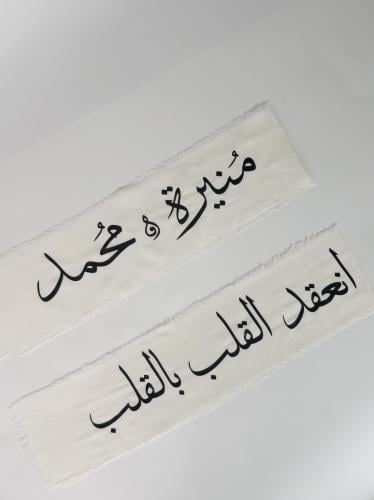 مُنيرة وُ محُمد
انعقد القلب بالقلب